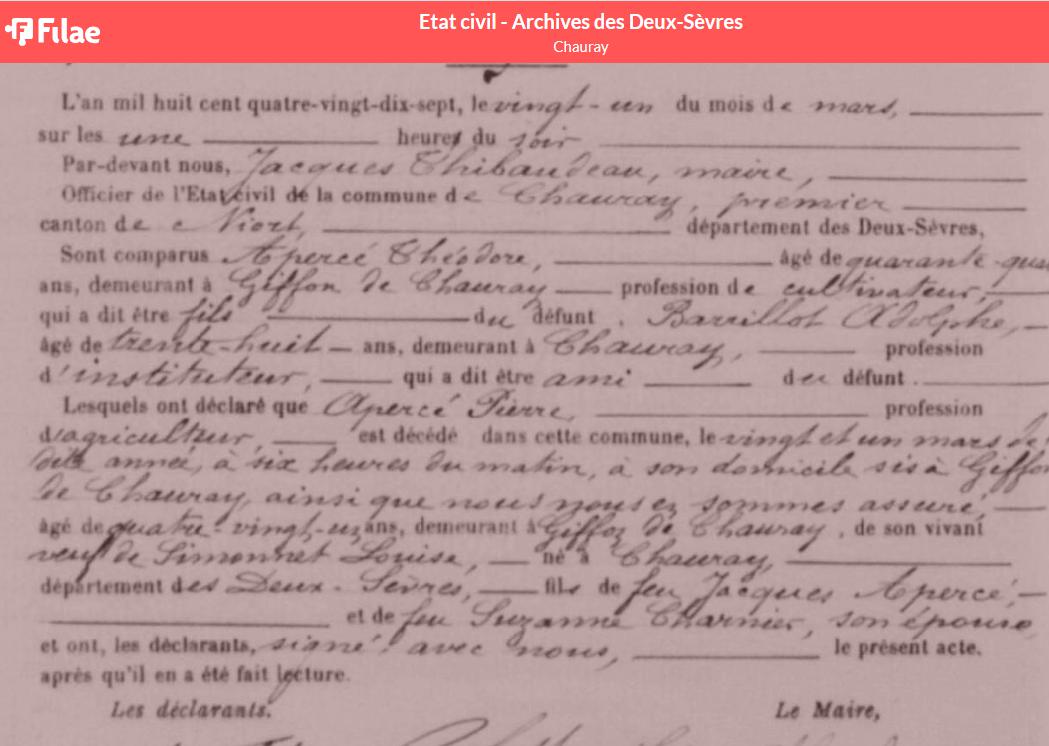 Filae
Etat civil - Archives des Deux-Sèvres
Chauray
L'an mil huit cent quatre-vingt-dix-sept, le vingt-un du mois de mars,
sur les une heures du soir
Par-devant nous, Jacques Thibaudeau, maire,
Officier de l'Etat civil de la commune de Chauray, premier
canton de Niort, département des Deux-Sèvres,
Sont comparus Apercé Théodore, âgé de quarante-qua
ans, demeurant à Giffon de Chauray profession de cultivateur,
qui a dit être fils du défunt. Barrillot Adolphe,
âgé de trente-huit ans, demeurant à Chauray, profession
d'instituteur, qui a dit être ami du défunt.
Lesquels ont déclaré que Apercé Pierre, profession
d'agriculteur, est décédé dans cette commune, le vingt et un mars
dite année, à six heures du matin, à son domicile sis à Giffon
de Chauray, ainsi que nous nous en sommes assuré,
âgé de quatre-vingt-un ans, demeurant à Giffon de Chauray, de son vivant
veuf de Simonnet Louise, né à Chauray,
département des Deux-Sèvres, fils de feu Jacques Apercé,
et de feu Suzanne Charnier, son épouse,
et ont, les déclarants, signé avec nous, le présent acte.
après qu'il en a été fait lecture.
Les déclarants. Le Maire,